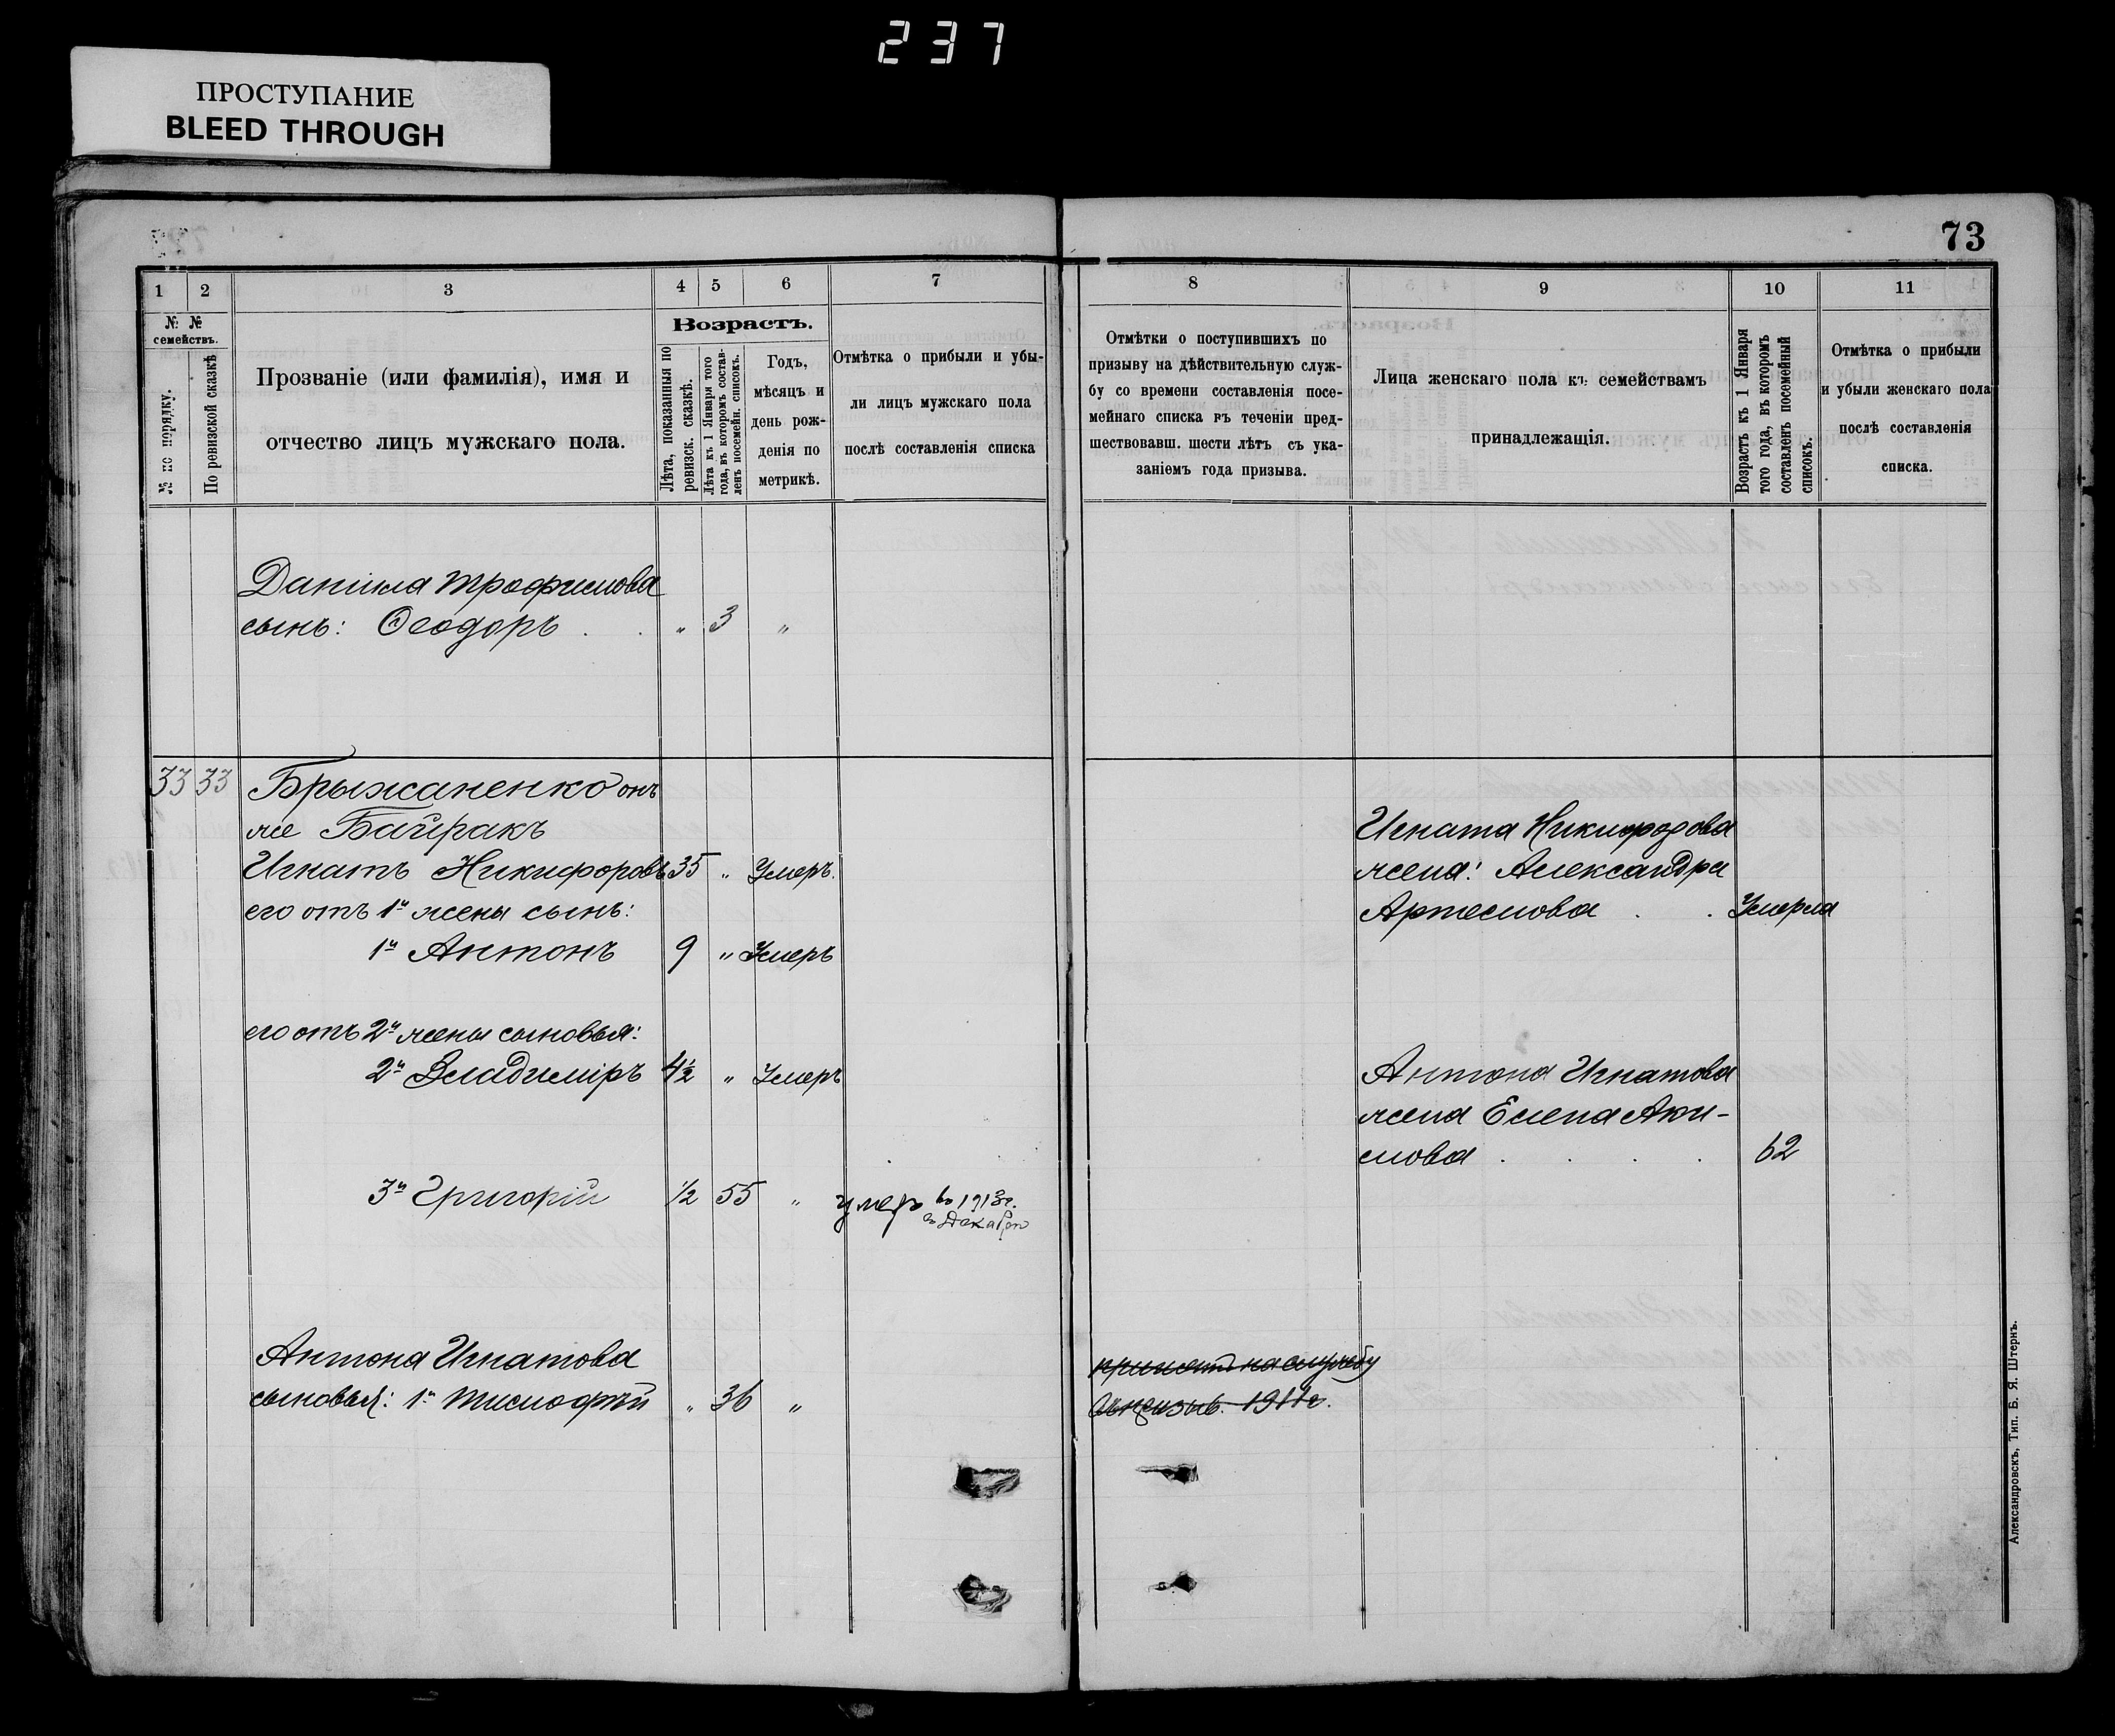 237
ПРОСТУПАНИЕ
BLEED THROUGH
73
1 2 3 4 5 6 7 8 9 10 11
№ № семействъ.
№ по порядку.
По ревизской сказкѣ
Прозваніе (или фамилія), имя и
отчество лицъ мужскаго пола.
Возрастъ.
Лѣта, показанныя по
ревизск. сказкѣ.
Лѣта къ 1 Января того
года, въ которомъ состав-
ленъ посемейн. списокъ.
Годъ,
мѣсяцъ и
день рож-
денія по
метрикѣ.
Отмѣтка о прибыли и убы-
ли лицъ мужскаго пола
послѣ составленія списка
Отмѣтки о поступившихъ по
призыву на дѣйствительную служ-
бу со времени составленія посе-
мейнаго списка въ теченіи пред-
шествовавш. шести лѣтъ съ ука-
заніемъ года призыва.
Лица женскаго пола къ семействамъ
принадлежащія.
Возрастъ къ 1 Января
того года, въ которомъ
составленъ посемейный
списокъ.
Отмѣтка о прибыли
и убыли женскаго пола
послѣ составленія
списка.
Даніила Трофимова
сынъ: Ѳеодоръ . . „ 3 „
33 33 Брыжаненко онъ
же Байракъ
Игнатъ Никифоровъ 35 „ Умеръ.
его отъ 1й жены сынъ:
1й Антонъ 9 „ Умеръ
его отъ 2й жены сыновья:
2й Владиміръ 4½ „ Умеръ
3й Григорій ½ 55 „ умеръ въ 1913г.
въ Декабрѣ
Антона Игнатова
сыновья: 1й Тимофѣй „ 36 „
на службу
1911г.
Игната Никифорова
жена: Александра
Артемова . . Умерла
Антона Игнатова
жена Елена Аки-
мова . . . . 62
Александровскъ, Тип. Б. Я. Штернъ.